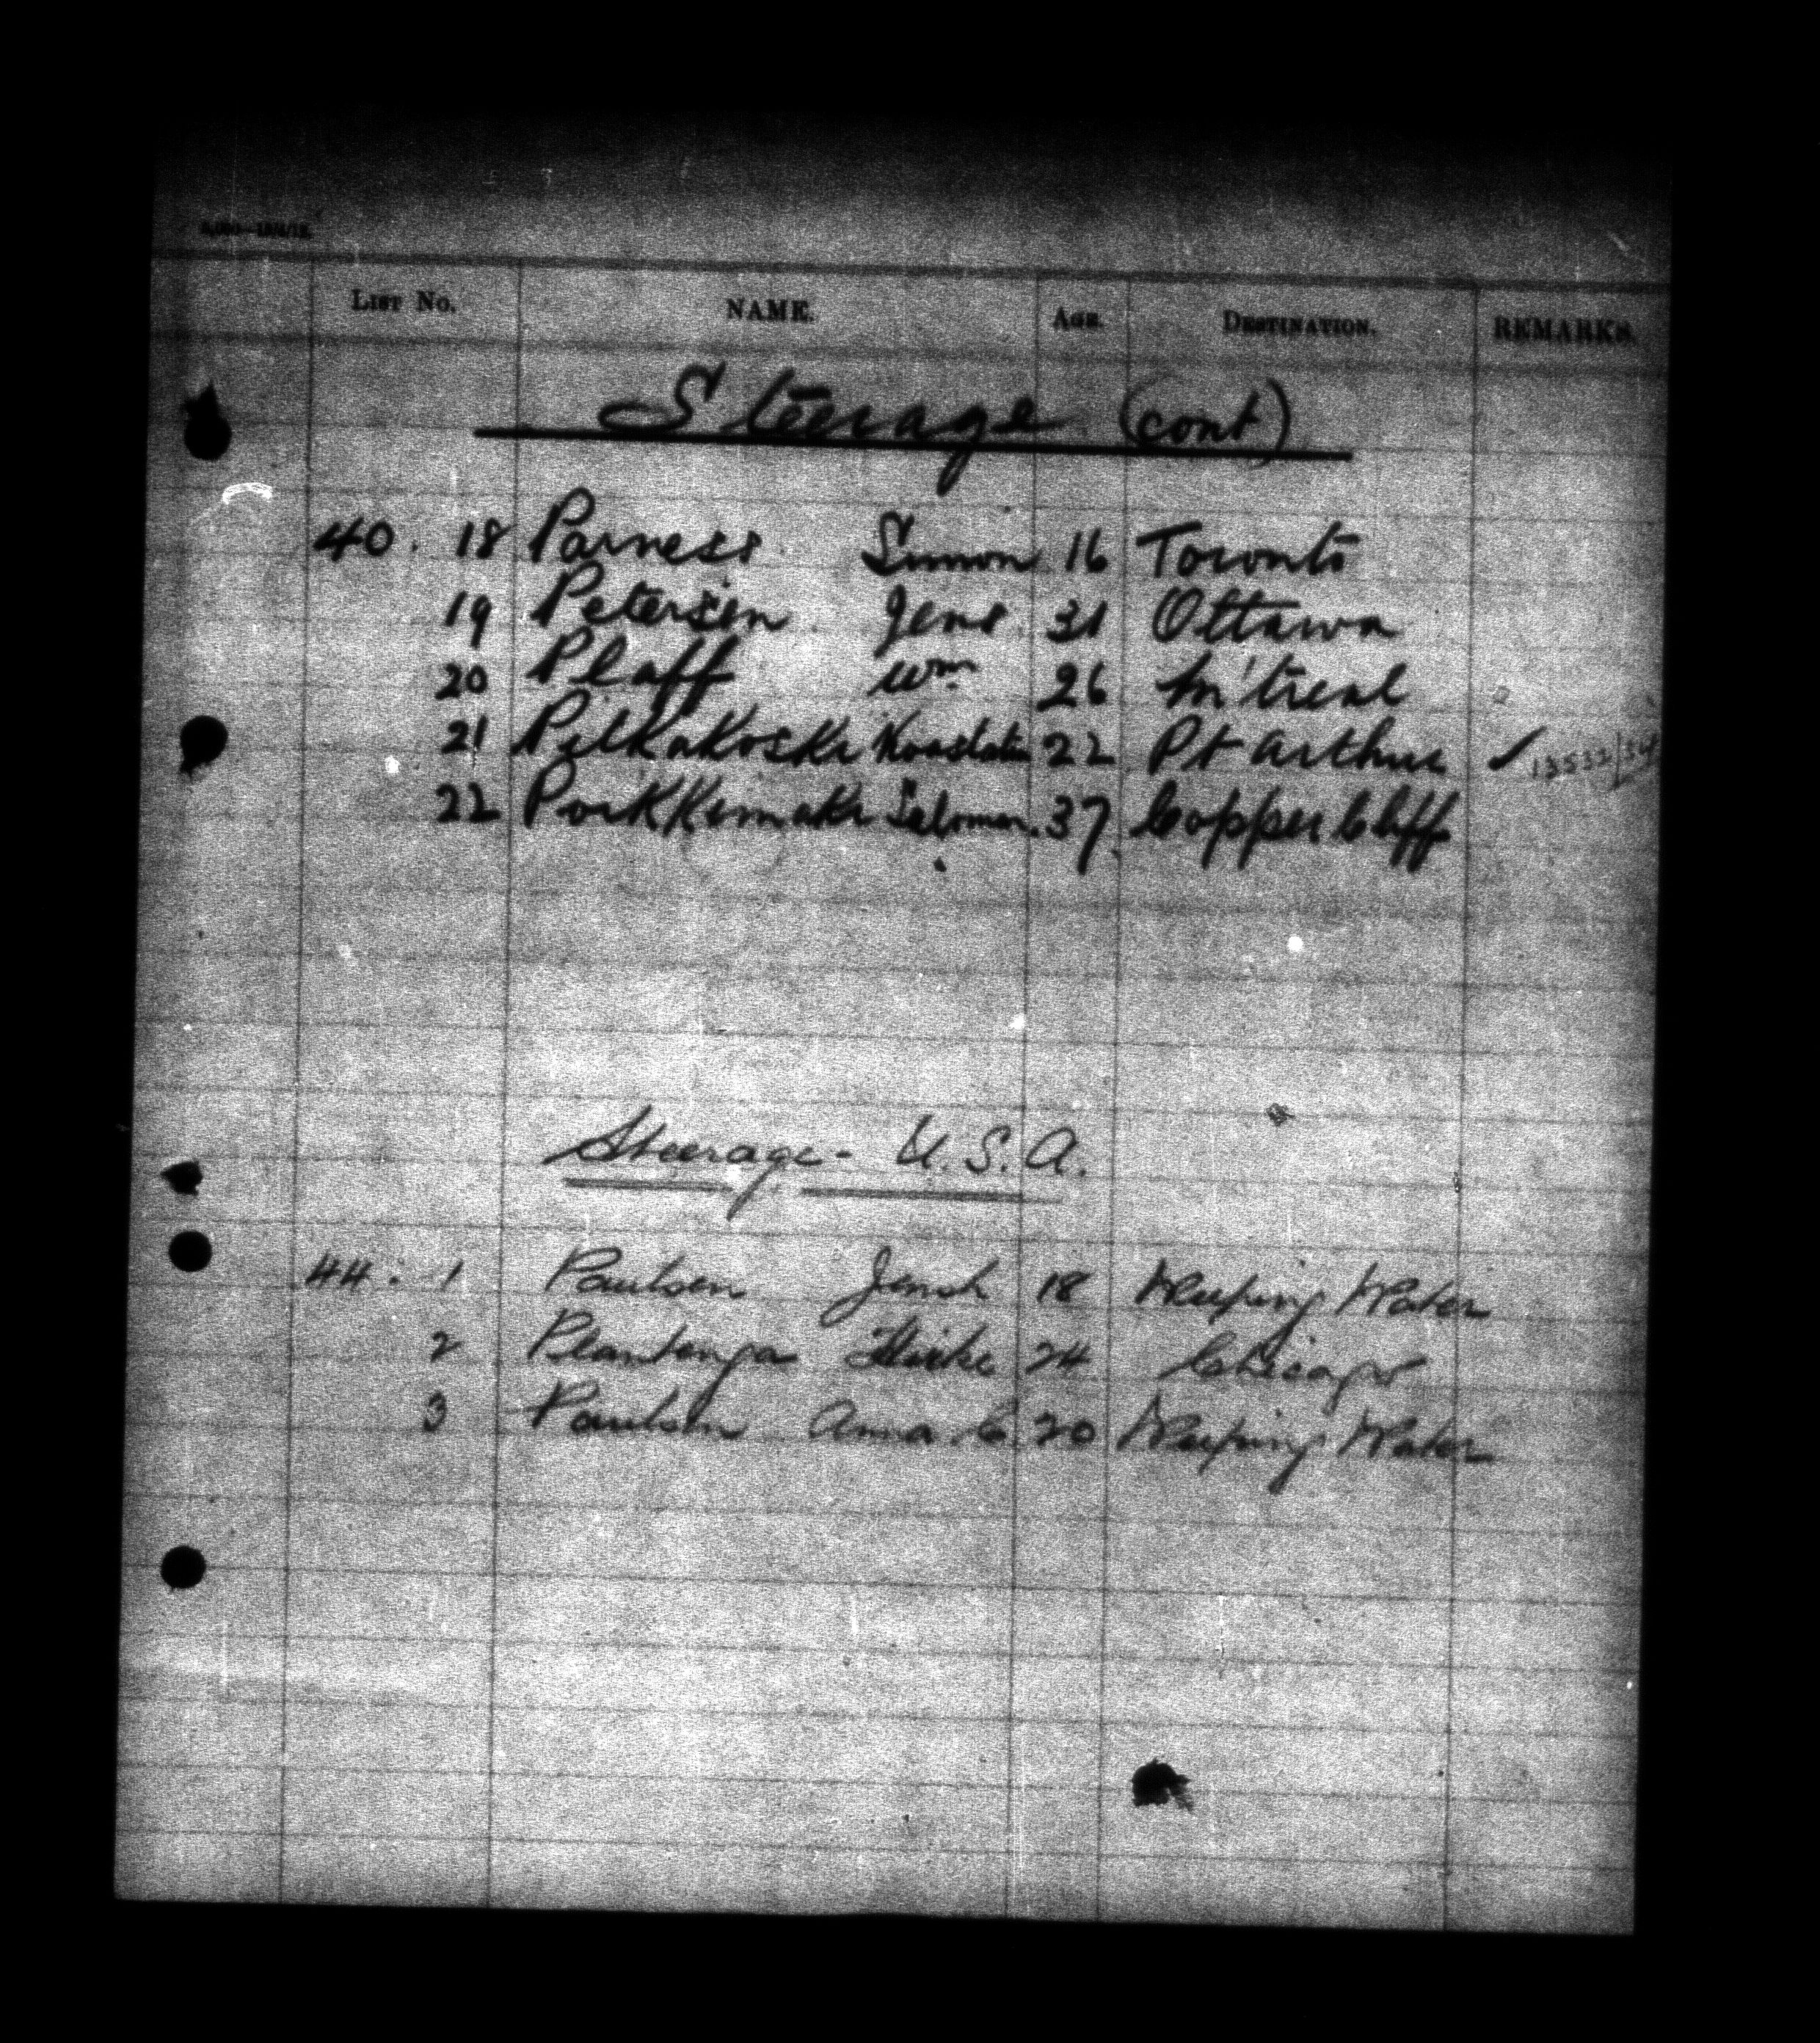 LIST No. NAME. AGE. DESTINATION. REMARKS.
Steerage (cont)
40. 18 Parness Simon 16 Toronto
19 Petersen Jens 31 Ottawa
20 Plaff Wm 26 M'treal
21 Pelkakoski 22 Pt Arthur ✓ 13532/34
22 Porkkemaki Salomon. 37 Copper Cliff
Steerage - U.S.A.
44. 1 Paulsen Jensh 18 Weeping Water
2 Plantenga 24 Chicago
3 Paulsen Anna C. 20 Weeping Water